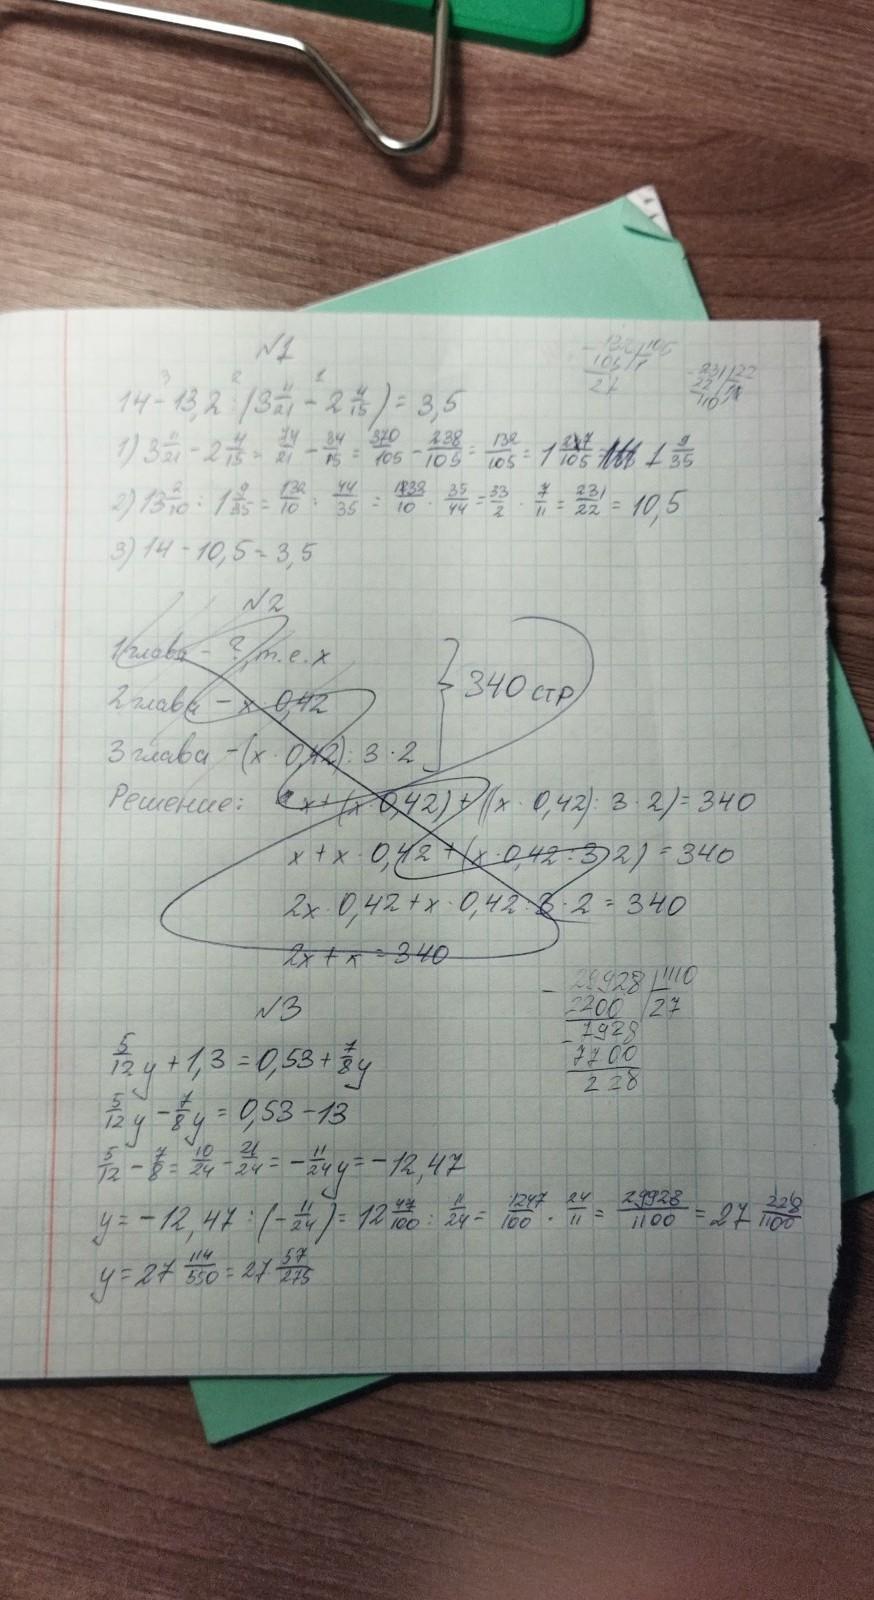 №1
14 - 13,2 : (3 11/21 - 2 4/15) = 3,5
1) 3 11/21 - 2 4/15 = 74/21 - 34/15 = 370/105 - 238/105 = 132/105 = 1 27/105 = 1 9/35
2) 13 2/10 : 1 9/35 = 132/10 : 44/35 = 132/10 · 35/44 = 33/2 · 7/11 = 231/22 = 10,5
3) 14 - 10,5 = 3,5
№2
1 глава - ?, т.е. x
2 глава - x · 0,42
3 глава - (x · 0,42) : 3 · 2
} 340 стр
Решение: x + (x · 0,42) + ((x · 0,42) : 3 · 2) = 340
x + x · 0,42 + (x · 0,42 : 3 · 2) = 340
2x · 0,42 + x · 0,42 : 3 · 2 = 340
2x + x = 340
№3
5/12 y + 1,3 = 0,53 + 7/8 y
5/12 y - 7/8 y = 0,53 - 13
5/12 - 7/8 = 10/24 - 21/24 = - 11/24 y = -12,47
y = -12,47 : (- 11/24) = 12 47/100 : 11/24 = 1247/100 · 24/11 = 29928/1100 = 27 228/1100
y = 27 114/550 = 27 57/275